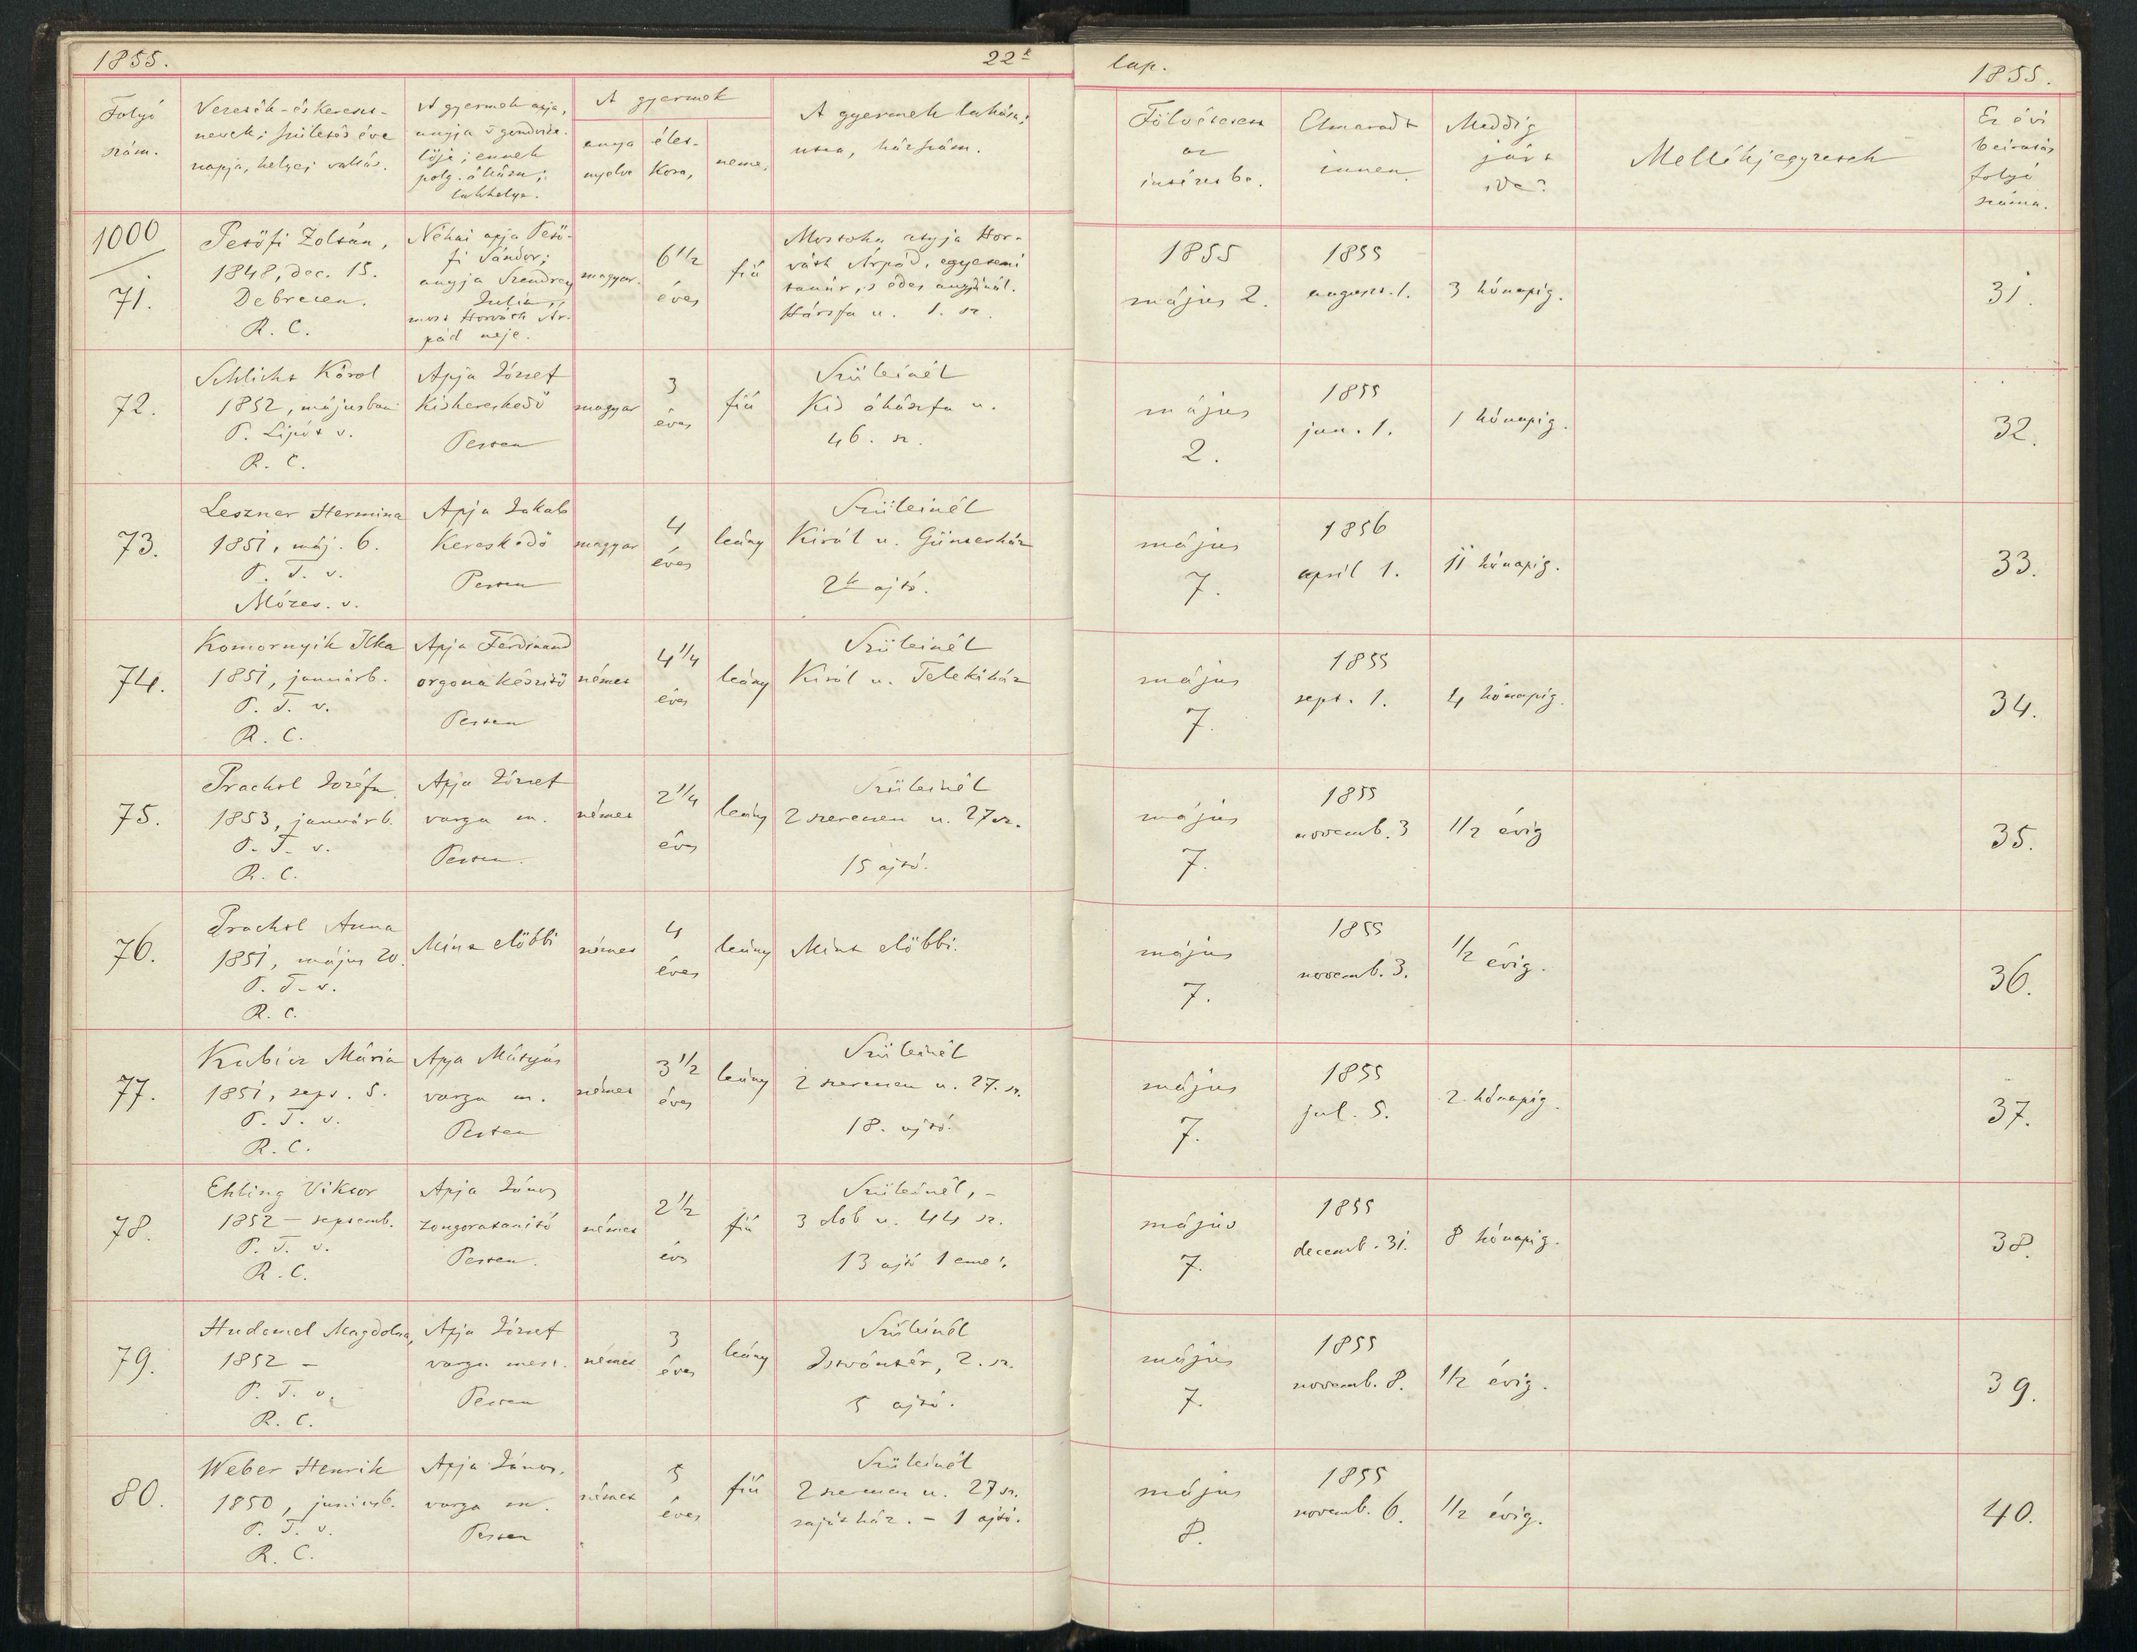 1855. 22k lap. 1855.
Folyó szám.
Vezeték- és kereszt-
nevek; születés éve
napja, helye; vallás.
A gyermek apja,
anyja v gondvise-
lője; ennek
polg. állása;
lakhelye.
A gyermek
anya nyelve
élet- kora,
neme.
A gyermek lakása;
utca, ház szám.
Fölvétetett
az
intézetbe.
Elmaradt
innen.
Meddig
járt
ide?
Mellékjegyzetek
Ez évi
beiratás
folyó
száma.
1000/71.
Petőfi Zoltán,
1848, dec. 15.
Debrecen.
R. C.
Néhai apja Pető-
fi Sándor;
anyja Szendrey
Julia,
most Horváth Ár-
pád neje.
magyar.
6 1/2
éves
fiú
Mostoha atyja Hor-
váth Árpád, egyetemi
tanár, s édes anyjánál.
Hársfa u. 1. sz.
1855
május 2.
1855
august. 1.
3 hónapig.
31.
72.
Schlicht Károl
1852, májusban
P. Lipót v.
R. C.
Apja József
Kiskereskedő
Pesten
magyar
3
éves
fiú
Szüleinél
Kis áhászfa u.
46. sz.
május
2.
1855
jun. 1.
1 hónapig.
32.
73.
Leszner Hermina
1851, máj. 6.
P. T. v.
Mózes. v.
Apja Jakab
Kereskedő
Pesten
magyar
4
éves
leány
Szüleinél
Királ u. Günterház
2k ajtó.
május
7.
1856
april 1.
11 hónapig.
33.
74.
Komornyik Ilka
1851, januárb.
P. T. v.
R. C.
Apja Ferdinand
orgona készítő
Pesten
német
4 1/4
éves
leány
Szüleinél
Királ u. Telekiház
május
7.
1855
sept. 1.
4 hónapig.
34.
75.
Prachtl Jozéfa
1853, januárb.
P. T. v.
R. C.
Apja József
varga m.
Pesten.
német
2 1/4
éves
leány
Szüleinél
2 szerecsen u. 27 sz.
15 ajtó.
május
7.
1855
novemb. 3
1/2 évig
35.
76.
Prachtl Anna
1851, május 20.
P. T. v.
R. C.
Mint előbbi
német
4
éves
leány
Mint előbbi.
május
7.
1855
novemb. 3.
1/2 évig.
36.
77.
Kubicz Mária
1851, sept. 5.
P. T. v.
R. C.
Apja Mátyás
varga m.
Pesten
német
3 1/2
éves
leány
Szüleinél
2 szerecsen u. 27. sz.
18. ajtó.
május
7.
1855
jul. 5.
2 hónapig.
37.
78.
Ehling Viktor
1852 – septemb.
P. T. v.
R. C.
Apja János
zongoratanító
Pesten.
német
2 1/2
éves
fiú
Szüleinél, –
3 dob u. 44 sz.
13 ajtó 1 eme:
május
7.
1855
decemb. 31.
8 hónapig.
38.
79.
Hudemel Magdolna,
1852 –
P. T. v.
R. C.
Apja József
varga mest.
Pesten
német
3
éves
leány
Szüleinél
Istvántér, 2. sz.
5 ajtó.
május
7.
1855
novemb. 8.
1/2 évig.
39.
80.
Weber Henrik
1850, juniusb.
P. T. v.
R. C.
Apja János,
varga m.
Pesten
német
5
éves
fiú
Szüleinél
2 szerecsen u. 27 sz.
saját ház. – 1 ajtó.
május
8.
1855
novemb. 6.
1/2 évig.
40.